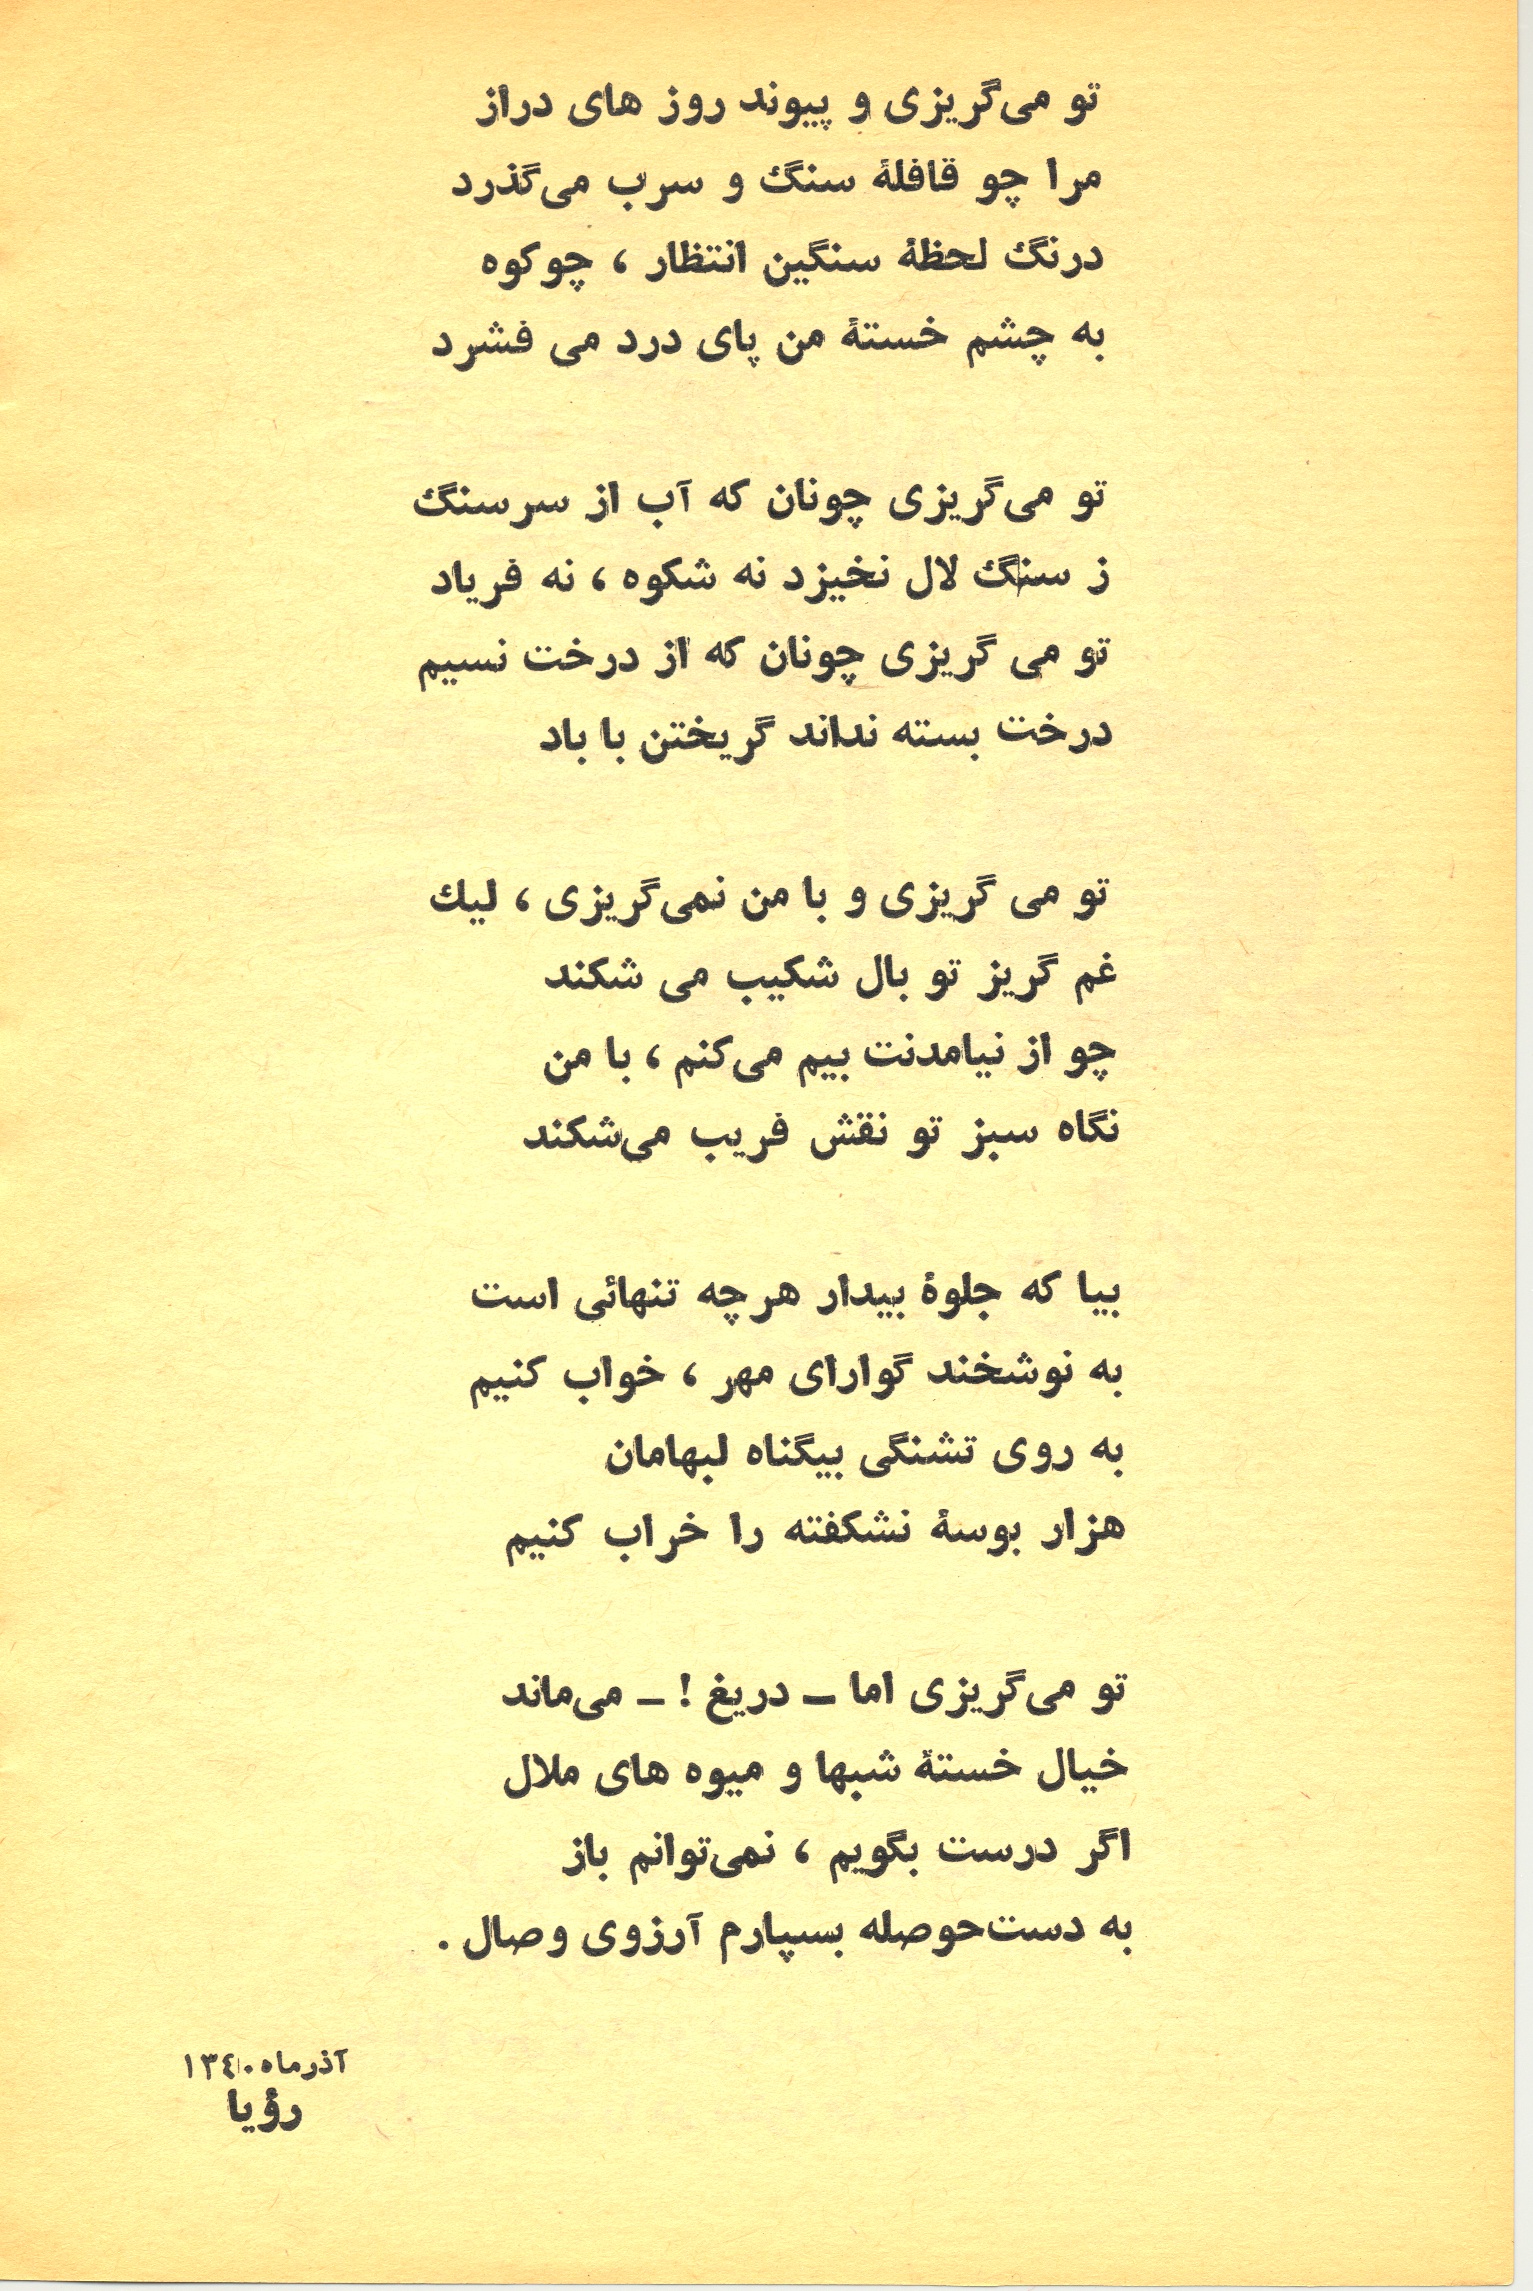 تو می‌گریزی و پیوند روز های دراز
مرا چو قافلهٔ سنگ و سرب می‌گذرد
درنگ لحظهٔ سنگین انتظار ، چو کوه
به چشم خستهٔ من پای درد می فشرد
تو می‌گریزی چونان که آب از سر سنگ
ز سنگ لال نخیزد نه شکوه ، نه فریاد
تو می گریزی چونان که از درخت نسیم
درخت بسته نداند گریختن با باد
تو می گریزی و با من نمی‌گریزی ، لیك
غم گریز تو بال شکیب می شکند
چو از نیامدنت بیم می‌کنم ، با من
نگاه سبز تو نقش فریب می‌شکند
بیا که جلوهٔ بیدار هر چه تنهائی است
به نوشخند گوارای مهر ، خواب کنیم
به روی تشنگی بیگناه لبهامان
هزار بوسهٔ نشکفته را خراب کنیم
تو می‌گریزی اما ـ دریغ ! ـ می‌ماند
خیال خستهٔ شبها و میوه های ملال
اگر درست بگویم ، نمی‌توانم باز
به دست‌حوصله بسپارم آرزوی وصال .
آذرماه ۱۳٤۰
رؤیا